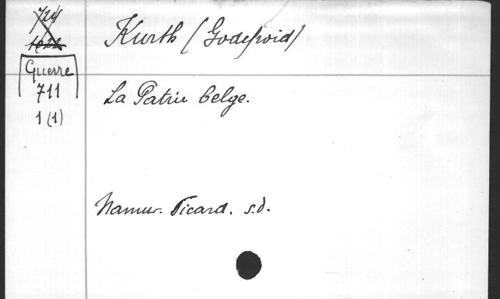 Kurth (Godefroid)
Guerre
711
1 (1)
La Patrie belge.
Namur. Picard. s.d.